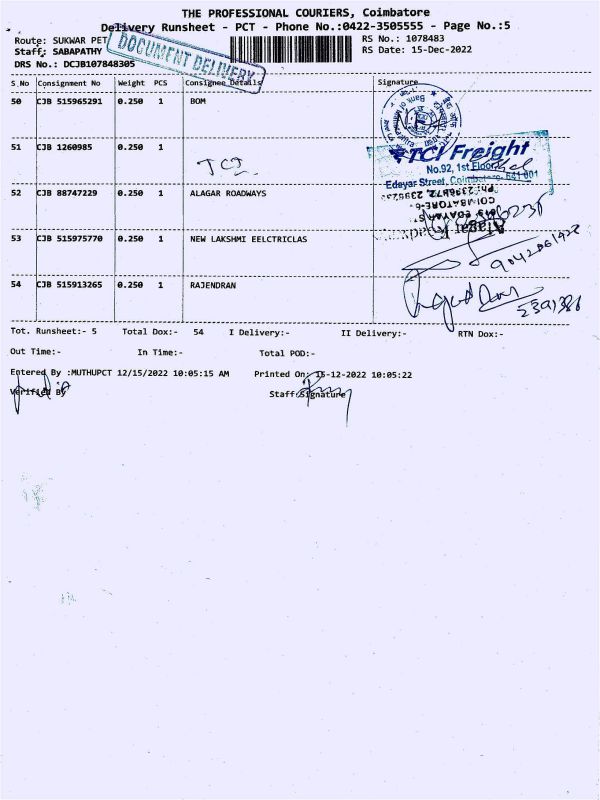 THE PROFESSIONAL COURIERS, Coimbatore
Delivery Runsheet - PCT - Phone No.:0422-3505555 - Page No.:5
Route: SUKWAR PET
RS No.: 1078483
Staff: SABAPATHY
RS Date: 15-Dec-2022
DRS No.: DCJB107848305
DOCUMENT DELIVERY
S.No Consignment No Weight PCS Consignee Details Signature
50 CJB 515965291 0.250 1 BOM
51 CJB 1260985 0.250 1
TCI
TCI Freight
No.92, 1st Floor
Edayar Street, Coimbatore- 641 001
52 CJB 88747229 0.250 1 ALAGAR ROADWAYS
COIMBATORE-
53 CJB 515975770 0.250 1 NEW LAKSHMI EELCTRICLAS
54 CJB 515913265 0.250 1 RAJENDRAN
Tot. Runsheet:- 5 Total Dox:- 54 I Delivery:- II Delivery:- RTN Dox:-
Out Time:- In Time:- Total POD:-
Entered By :MUTHUPCT 12/15/2022 10:05:15 AM Printed On: 15-12-2022 10:05:22
Verified By Staff Signature